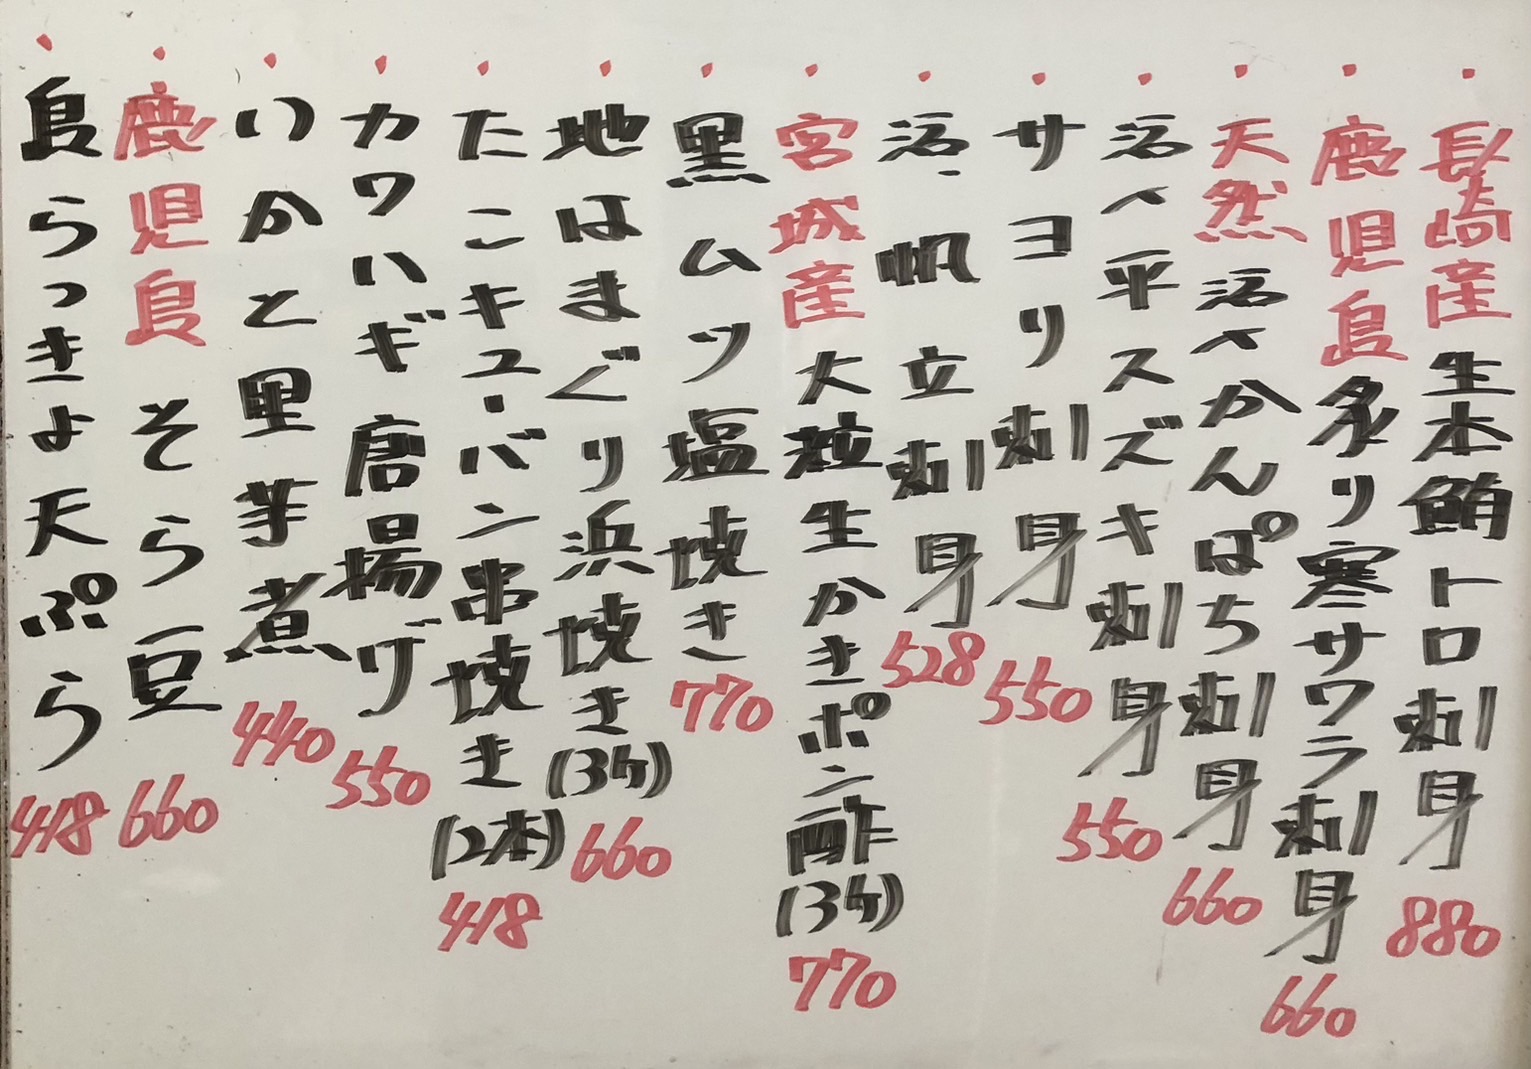 長崎産生本鮪トロ刺身880
鹿児島炙り寒サワラ刺身660
天然活〆かんぱち刺身660
活〆平スズキ刺身550
サヨリ刺身550
活・帆立刺身528
宮城産大粒生かきポン酢(3ケ)770
黒ムツ塩焼き770
地はまぐり浜焼き(3ケ)660
たこキュ・バン串焼き(2本)418
カワハギ唐揚げ550
いかと里芋煮440
鹿児島そらら豆660
島らっきょ天ぷら418